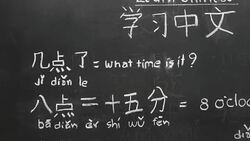 学习中文
几点了=what time is it?
jǐ diǎn le
八点二十五分= 8 o'clo
bā diǎn èr shí wǔ fēn